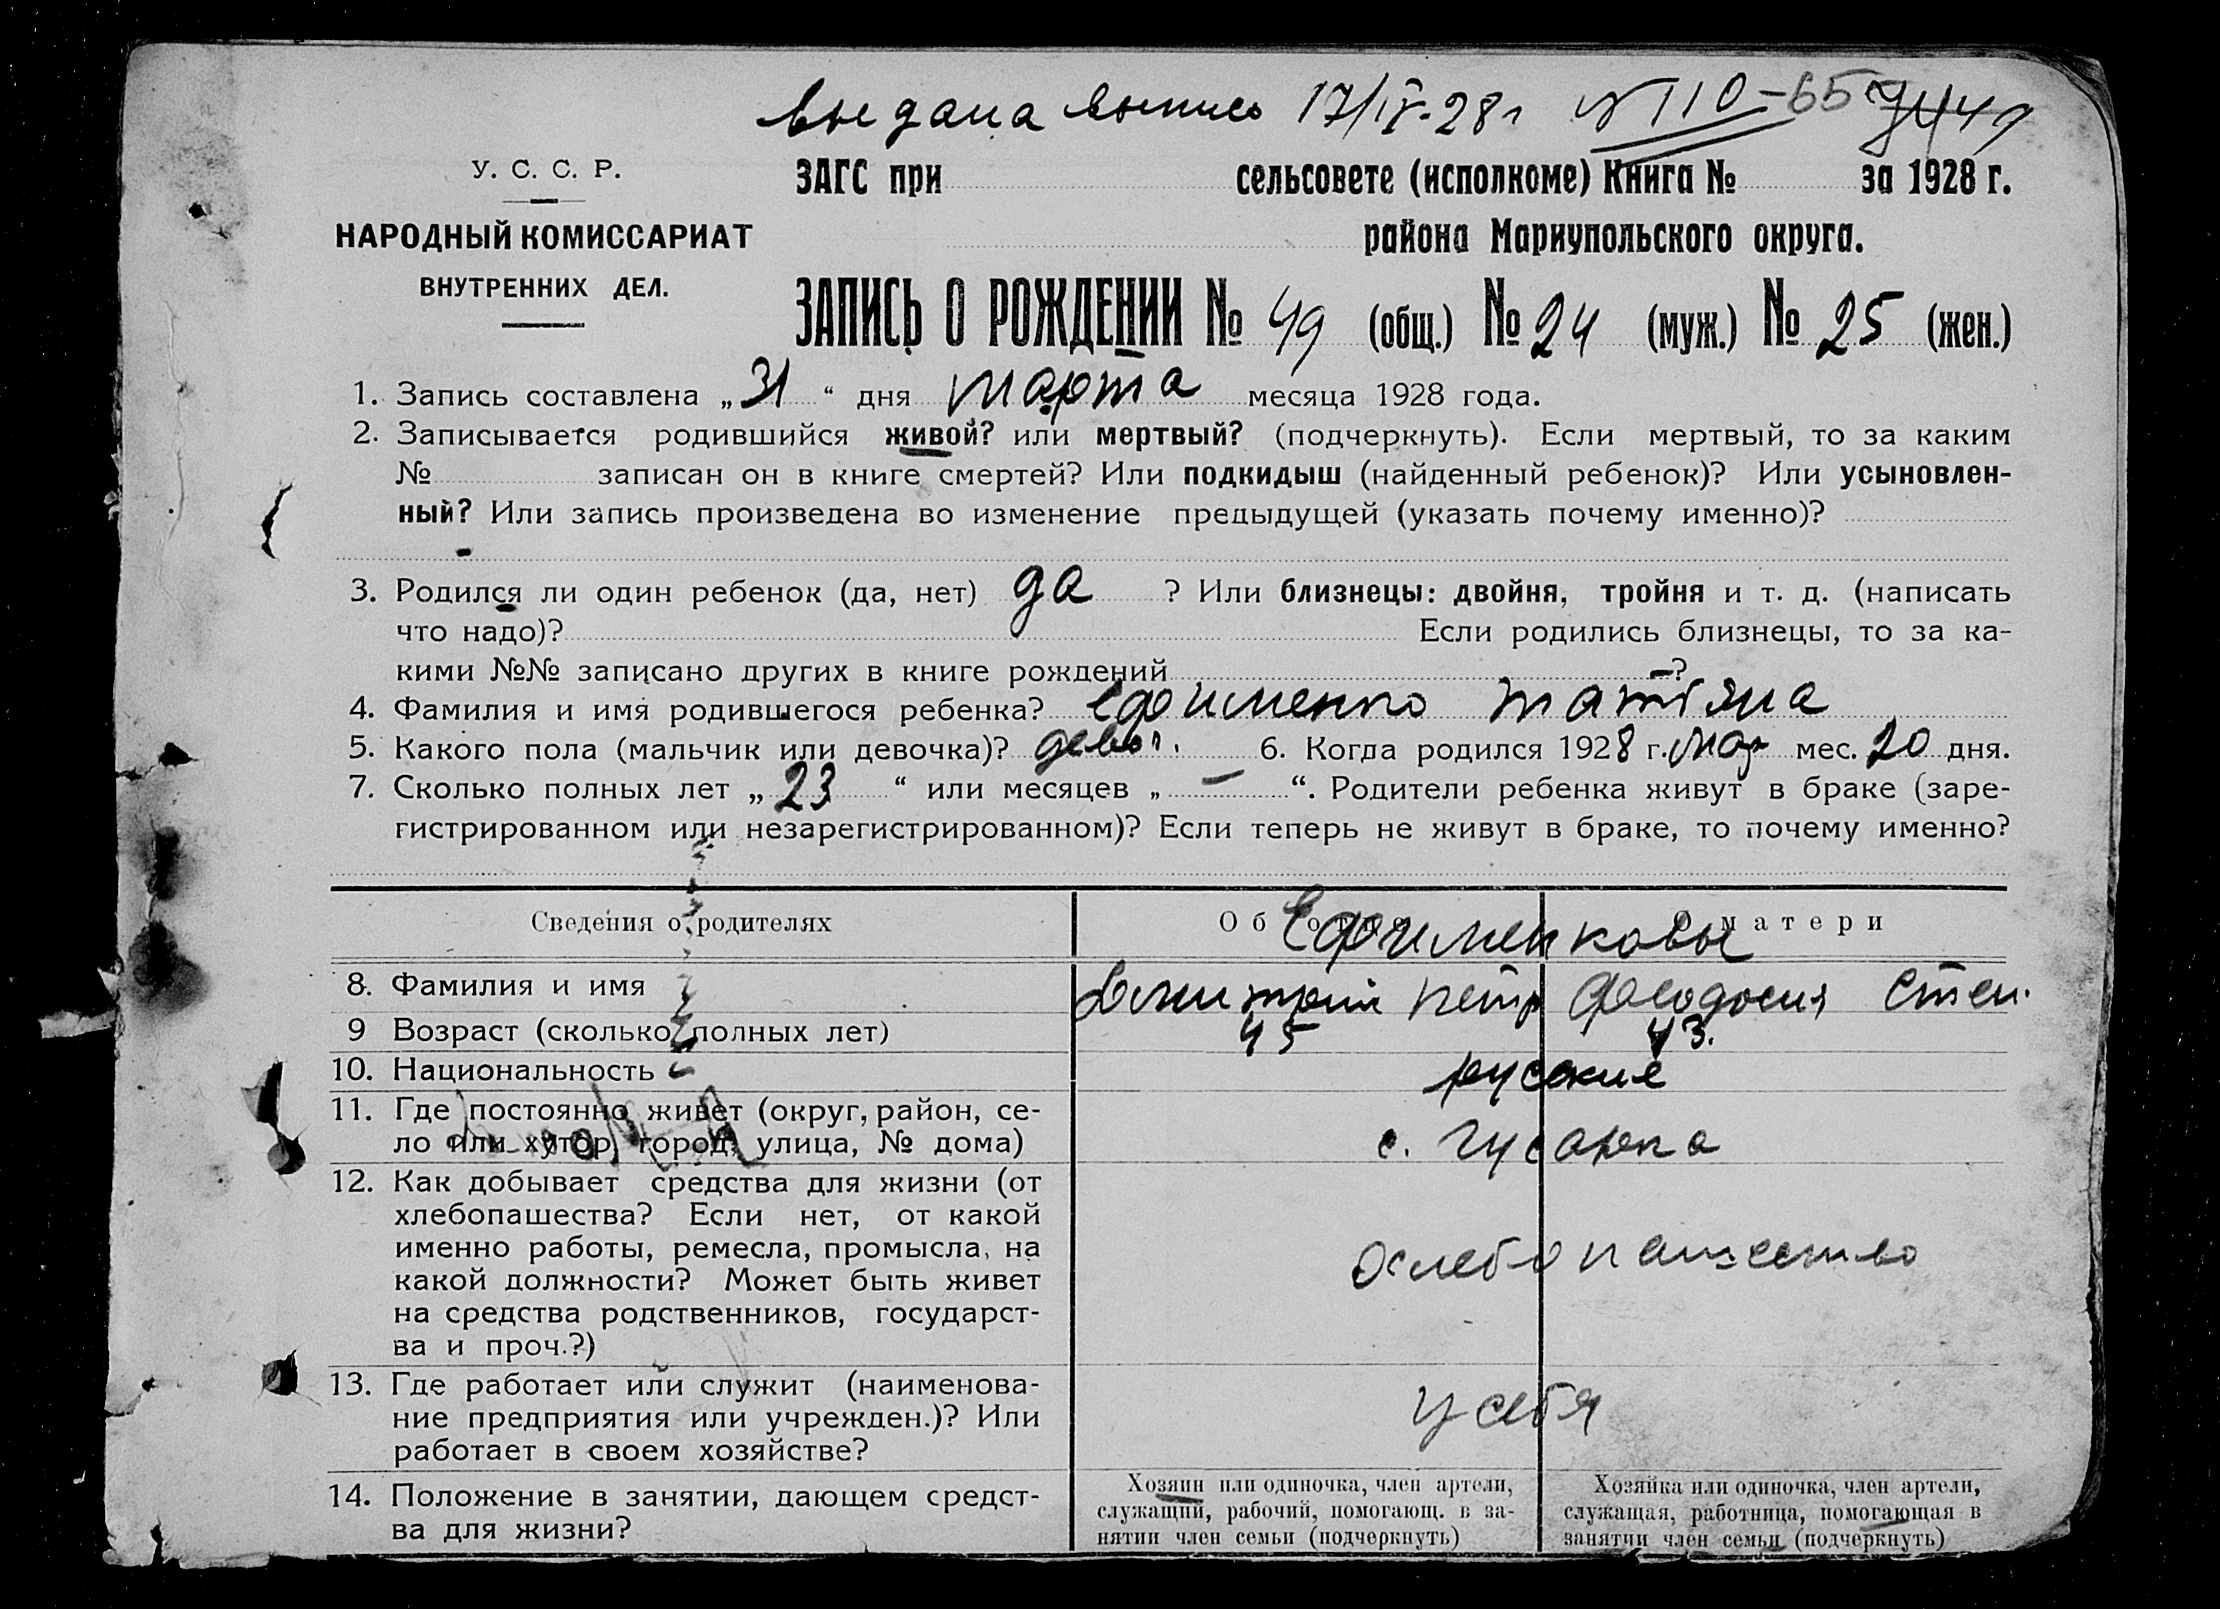 выдана выпись 17/IV-28г №110-65
У. С. С. Р.
НАРОДНЫЙ КОМИССАРИАТ
ВНУТРЕННИХ ДЕЛ.
ЗАГС при сельсовете (исполкоме) Книга № за 1928 г.
района Мариупольского округа.
ЗАПИСЬ О РОЖДЕНИИ № 49 (общ.) № 24 (муж.) № 25 (жен.)
1. Запись составлена „31“ дня марта месяца 1928 года.
2. Записывается родившийся живой? или мертвый? (подчеркнуть). Если мертвый, то за каким
№ записан он в книге смертей? Или подкидыш (найденный ребенок)? Или усыновлен-
ный? Или запись произведена во изменение предыдущей (указать почему именно)?
-
3. Родился ли один ребенок (да, нет) да ? Или близнецы: двойня, тройня и т. д. (написать
что надо)? Если родились близнецы, то за ка-
кими №№ записано других в книге рождений —?
4. Фамилия и имя родившегося ребенка? Ефименко Татьяна
5. Какого пола (мальчик или девочка)? девоч. 6. Когда родился 1928 г. мар мес. 20 дня.
7. Сколько полных лет „23“ или месяцев „—“. Родители ребенка живут в браке (заре-
гистрированном или незарегистрированном)? Если теперь не живут в браке, то почему именно?
Сведения о родителях Об отце О матери
Ефименковы
8. Фамилия и имя Дмитрий Петр Феодосия Степ.
9 Возраст (сколько полных лет) 45 43.
10. Национальность русские
11. Где постоянно живет (округ, район, се-
ло или хутор, город, улица, № дома) с. Гусарка
12. Как добывает средства для жизни (от
хлебопашества? Если нет, от какой
именно работы, ремесла, промысла, на
какой должности? Может быть живет
на средства родственников, государст-
ва и проч.?)
хлебопашество
13. Где работает или служит (наименова-
ние предприятия или учрежден.)? Или
работает в своем хозяйстве?
у себя
14. Положение в занятии, дающем средст-
ва для жизни?
Хозяин или одиночка, член артели,
служащий, рабочий, помогающ. в за-
нятии член семьи (подчеркнуть)
Хозяйка или одиночка, член артели,
служащая, работница, помогающая в
занятии член семьи (подчеркнуть)